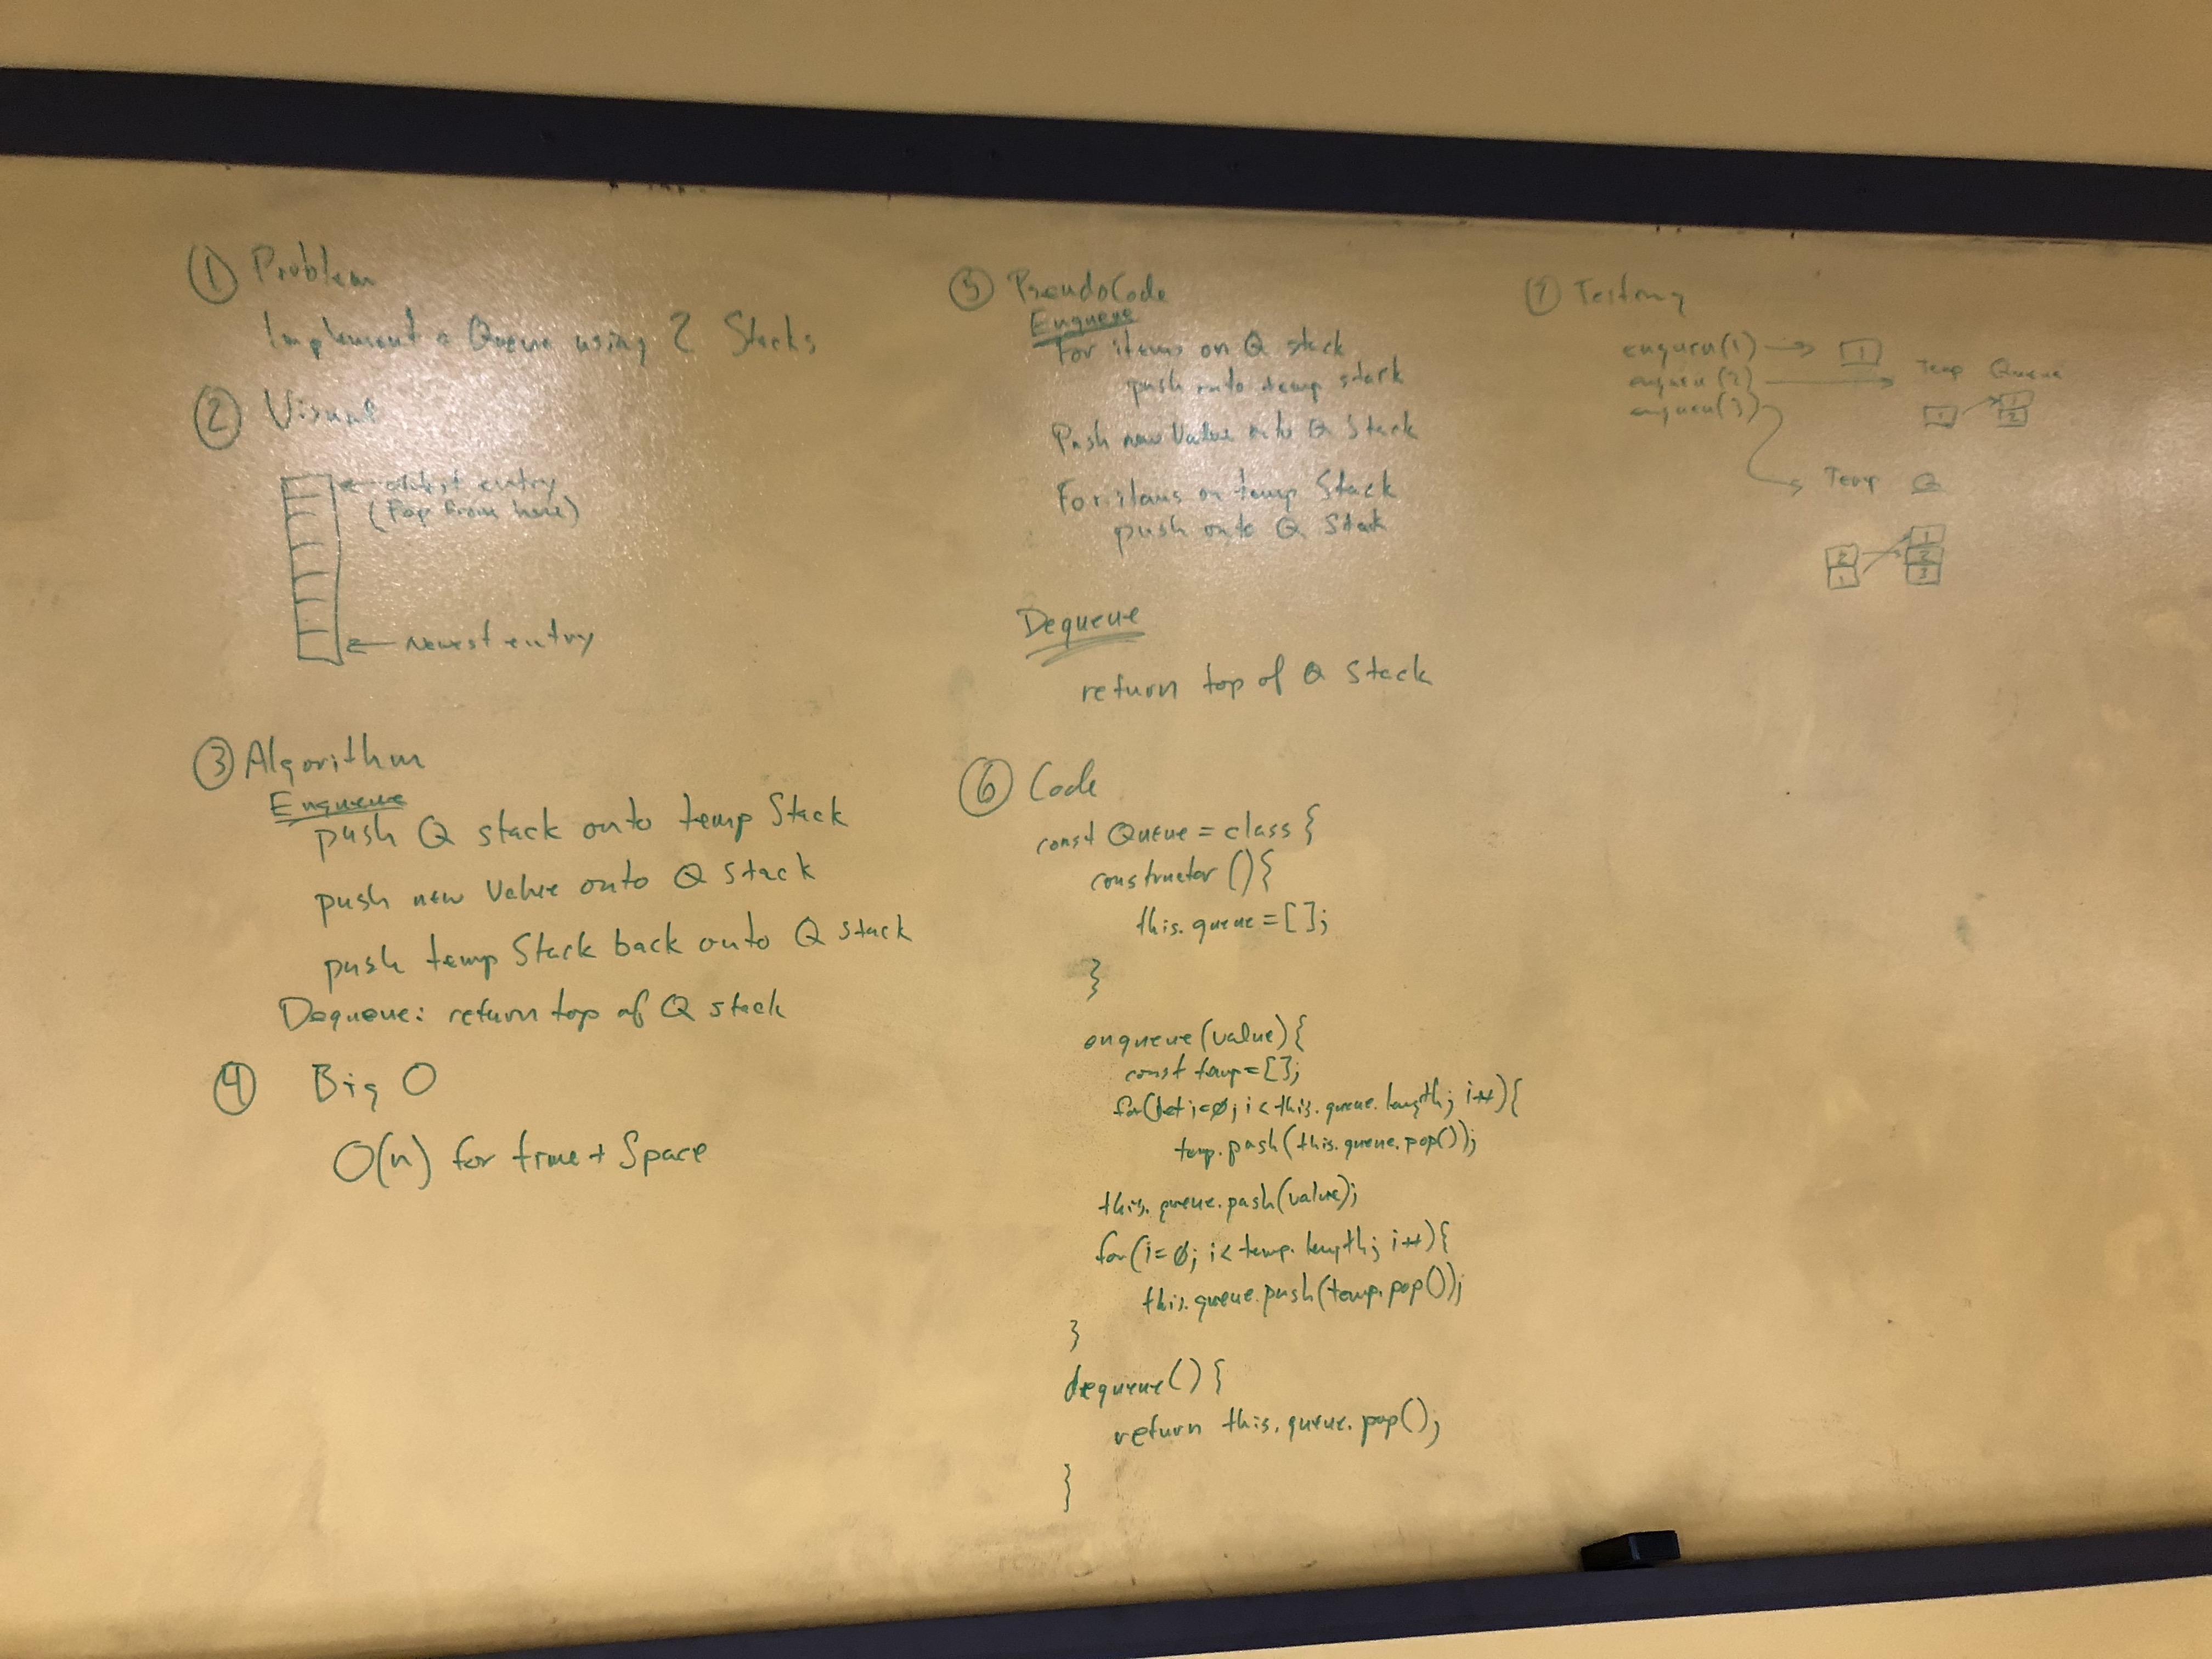 ① Problem
Implement a Queue using 2 Stacks
② Visual
oldest entry
(Pop from here)
Newest entry
③ Algorithm
Enqueue
push Q stack onto temp Stack
push new Value onto Q stack
push temp Stack back onto Q stack
Dequeue: return top of Q stack
④ Big O
O(n) for time + Space
⑤ PseudoCode
Enqueue
For items on Q stack
push onto temp stack
Push new Value onto Q Stack
For items on temp Stack
push onto Q Stack
Dequeue
return top of Q stack
⑥ Code
const Queue = class {
constructor () {
this.queue = [];
}
enqueue (value) {
const temp = [];
for(let i=0; i < this.queue.length; i++){
temp.push(this.queue.pop());
this.queue.push(value);
for(i=0; i < temp.length; i++){
this.queue.push(temp.pop());
}
dequeue () {
return this.queue.pop();
}
⑦ Testing
enqueu(1) → 1
enqueu(2) → Temp Queue
enqueu(3)
1 1
2
Temp Q
1
2 2
1 3